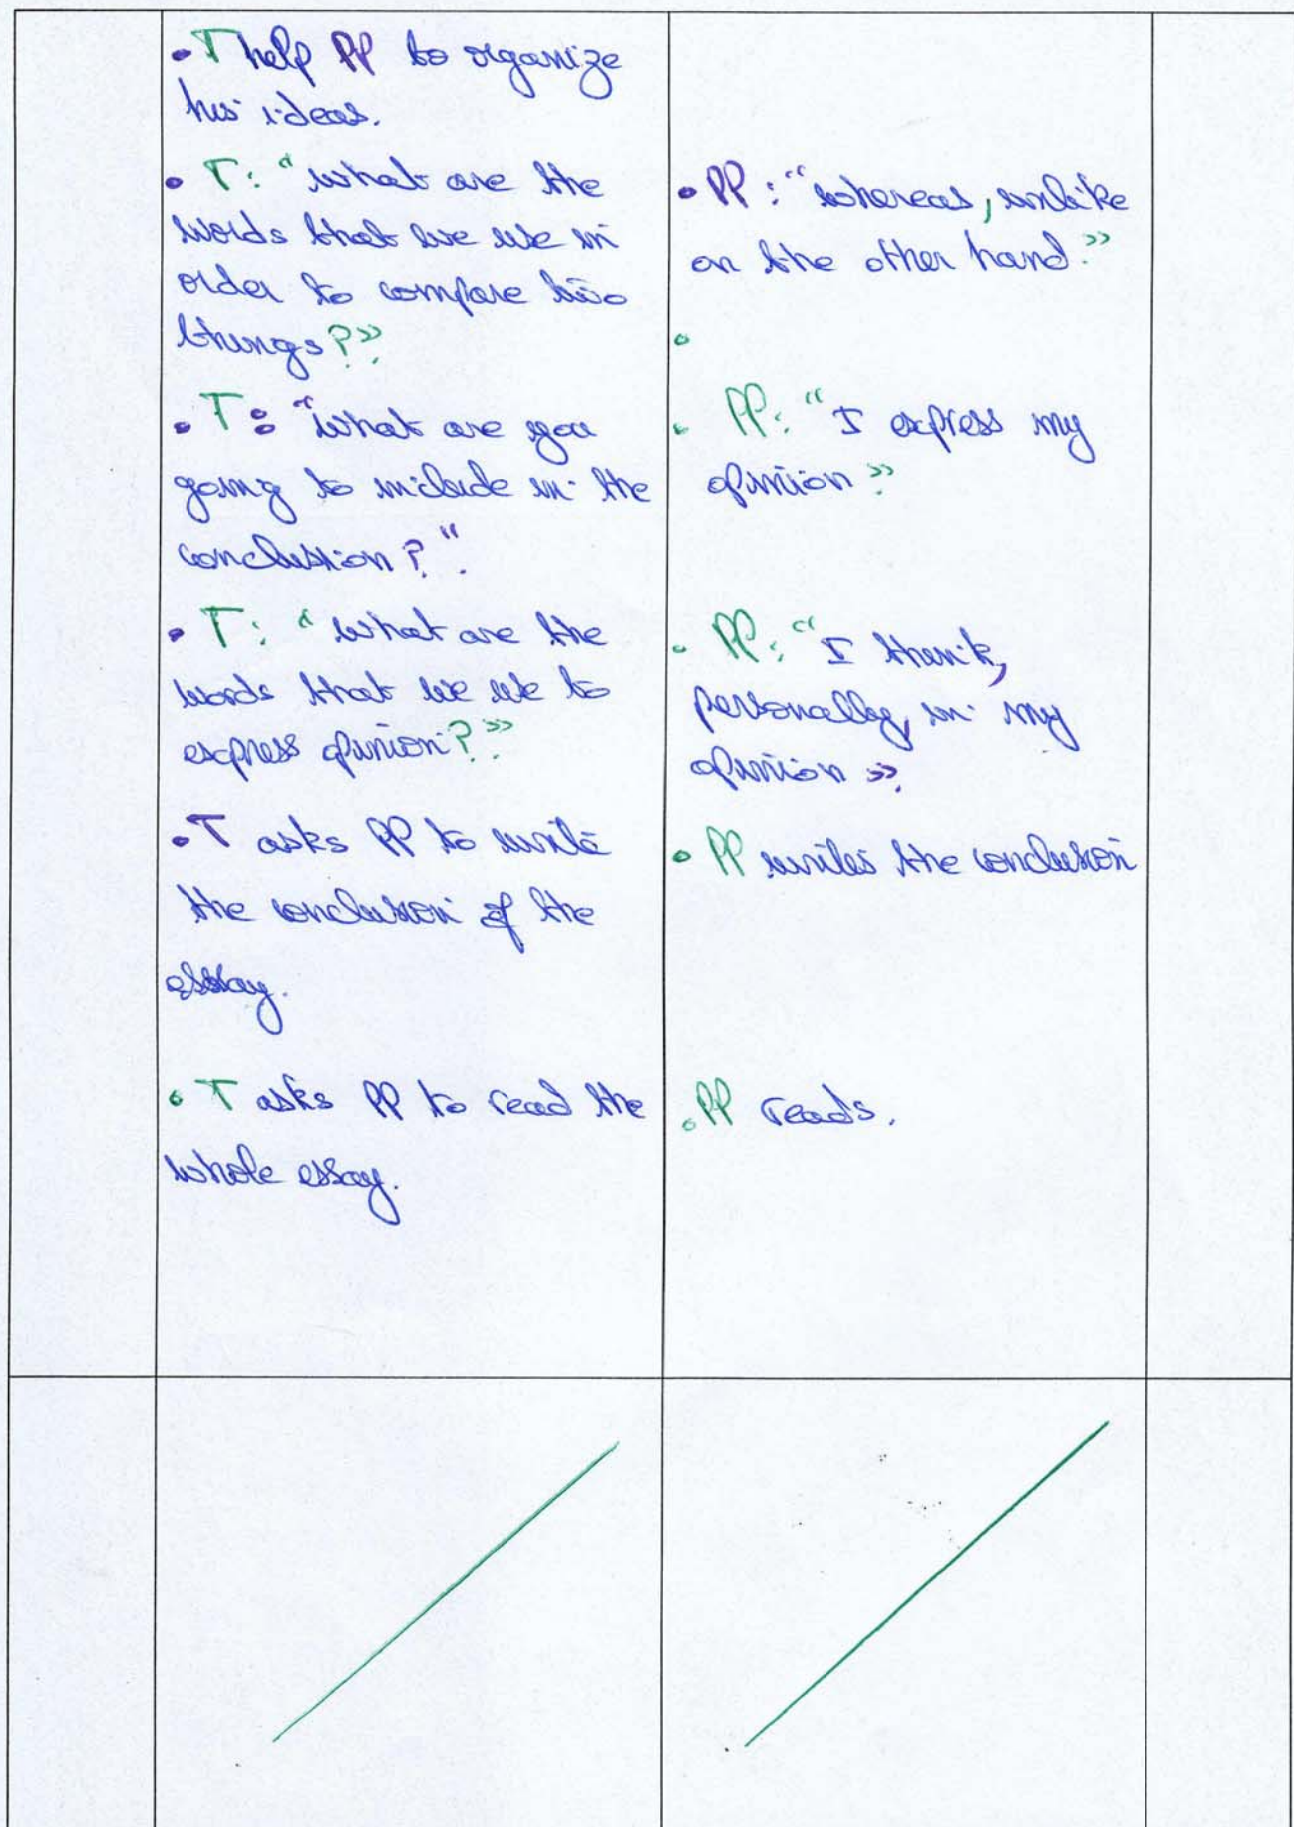 • T help PP to organize
his ideas.
• T: "what are the
words that we use in
order to compare two
things?»
• T: "what are you
going to include in the
conclusion?".
• T: "what are the
words that we use to
express opinion?»
• T asks PP to write
the conclusion of the
essay.
• T asks PP to read the
whole essay.
• PP: "whereas, unlike
on the other hand.»
•
• PP: "I express my
opinion»
• PP: "I think,
personally, in my
opinion».
• PP writes the conclusion
• PP reads.